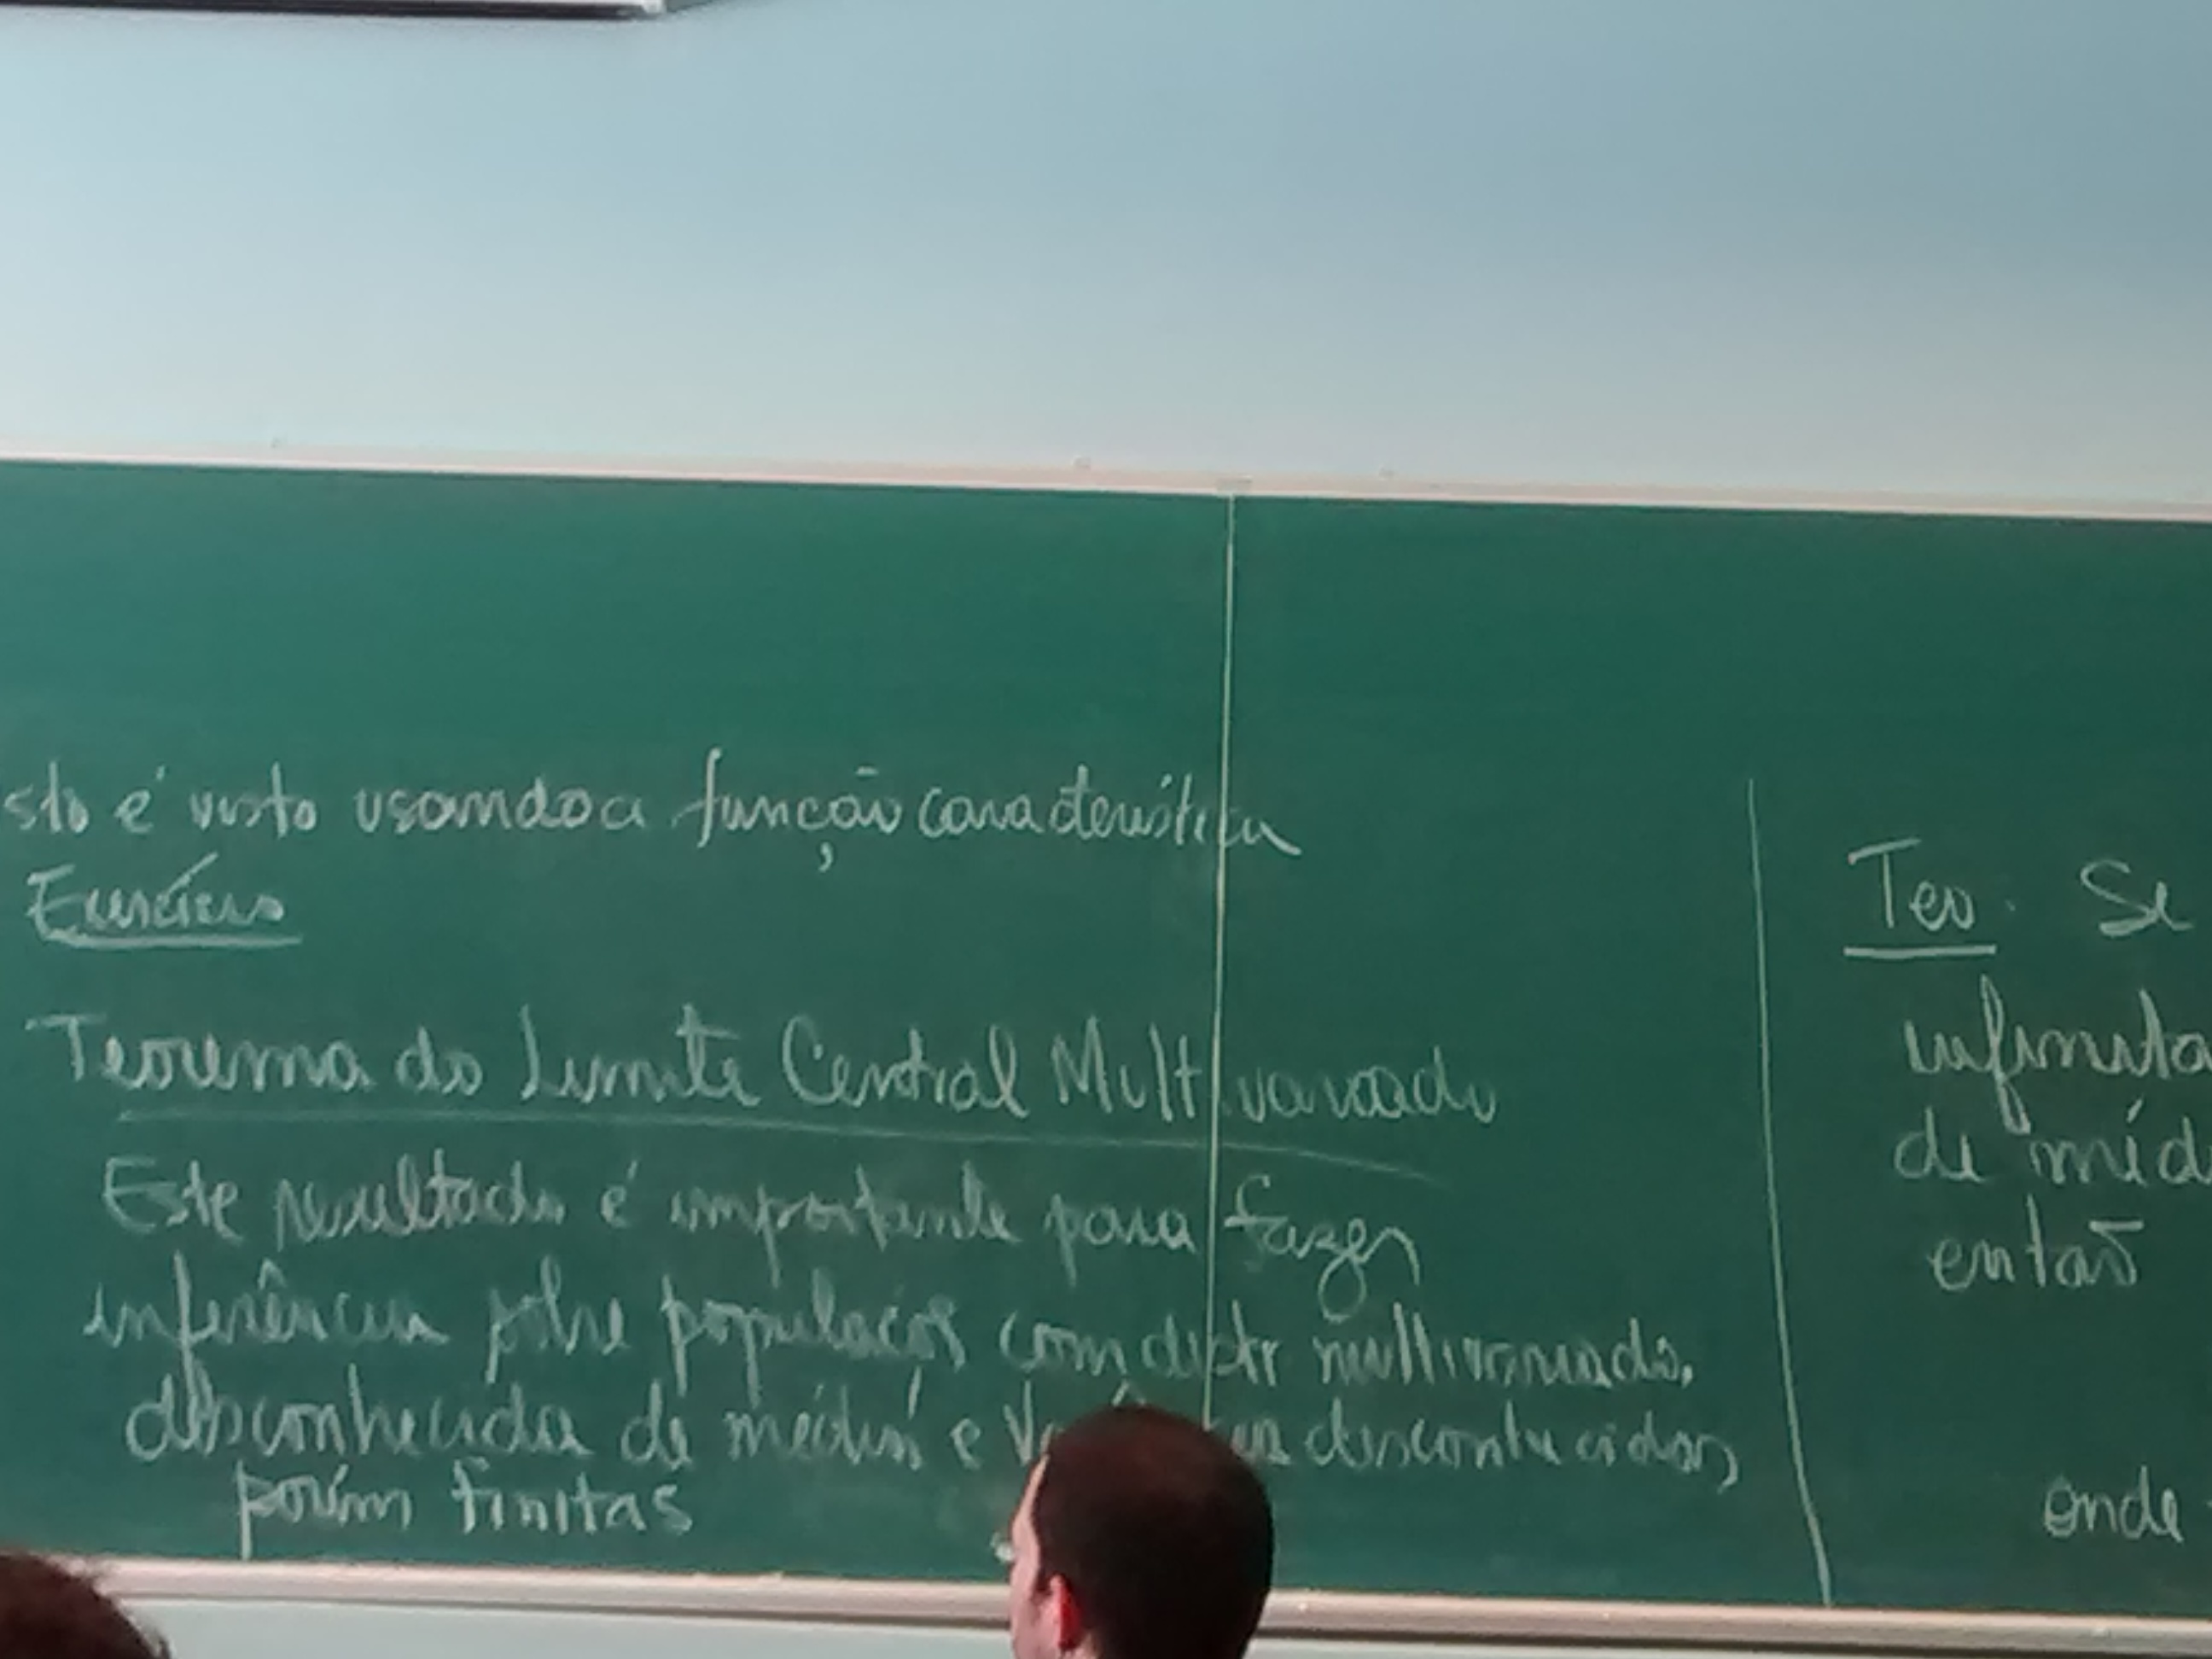 sto é visto usando a função característica
Exercício
Teorema do Limite Central Multivariado
Este resultado é importante para fazer
inferência sobre populações com distr multivariada
desconhecida de média e desconhecidas
porém finitas
Teo. Se
infinita
de méd
então
onde